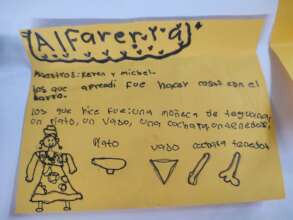 Alfarería
Maestros: Keren y michel.
los que aprendí fue hacer cosas con el
barro.
los que hice fue: una moñeca de
un plato, un vaso, una cuchara, un tenedor,
plato vaso cuchara tenedor